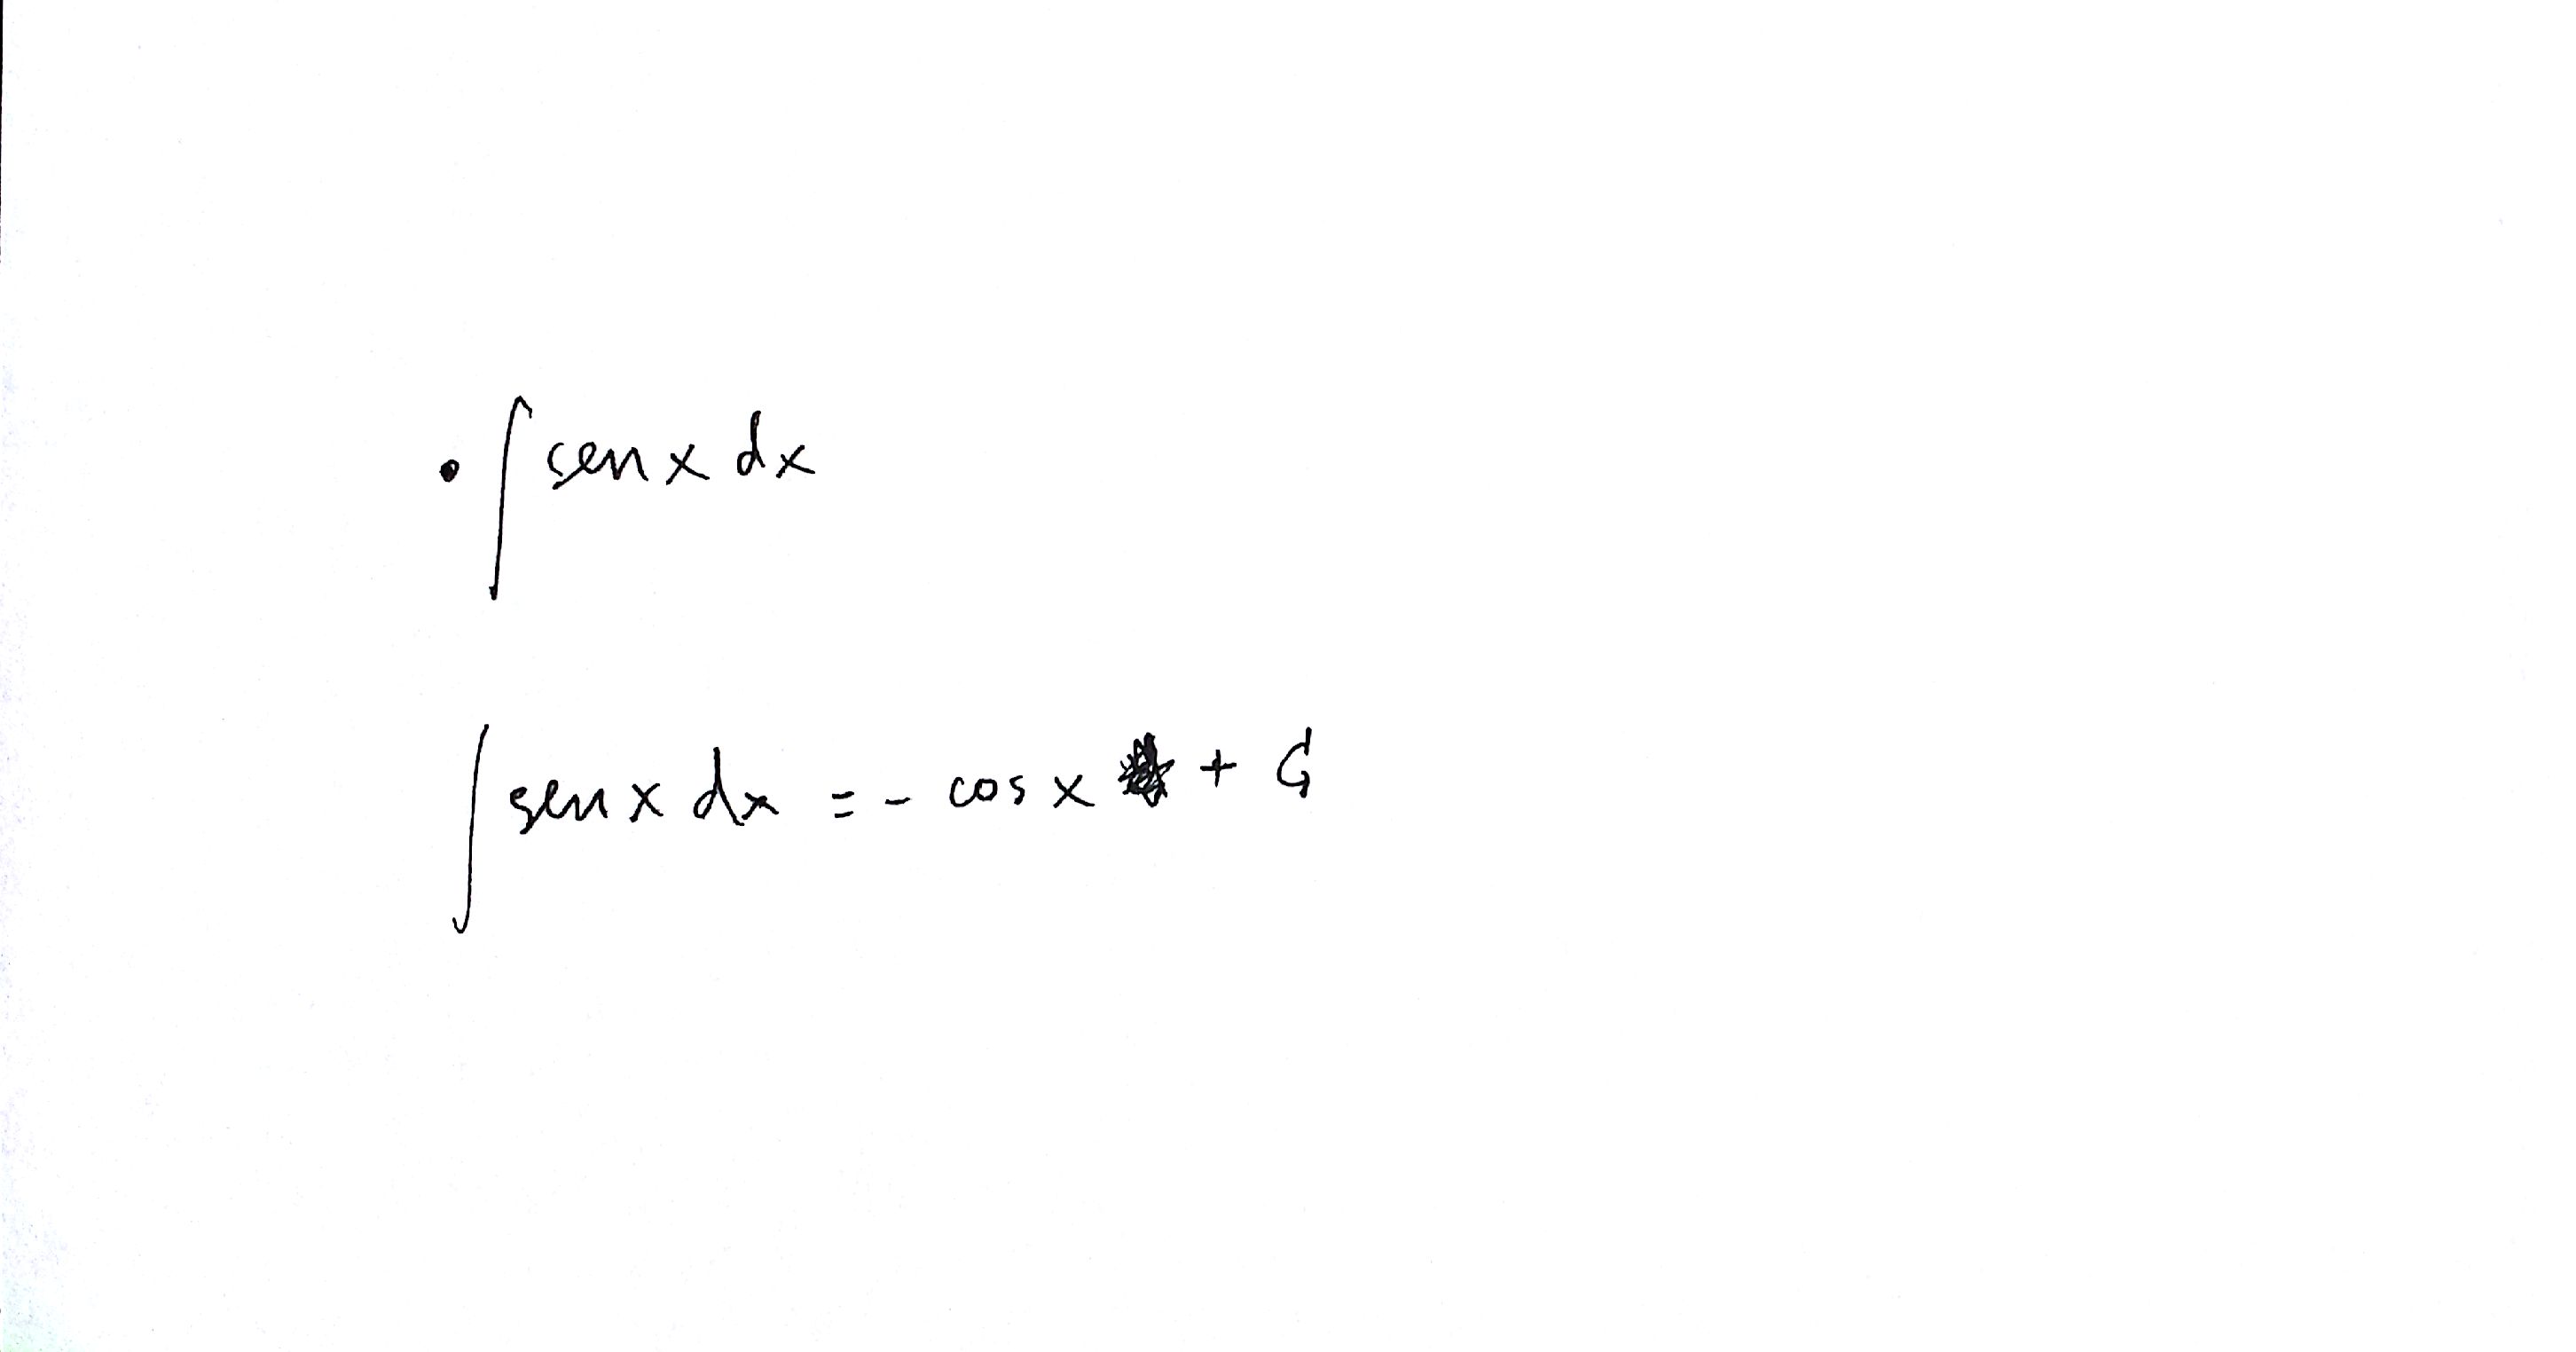 • ∫ sen x dx
∫ sen x dx = - cos x + C